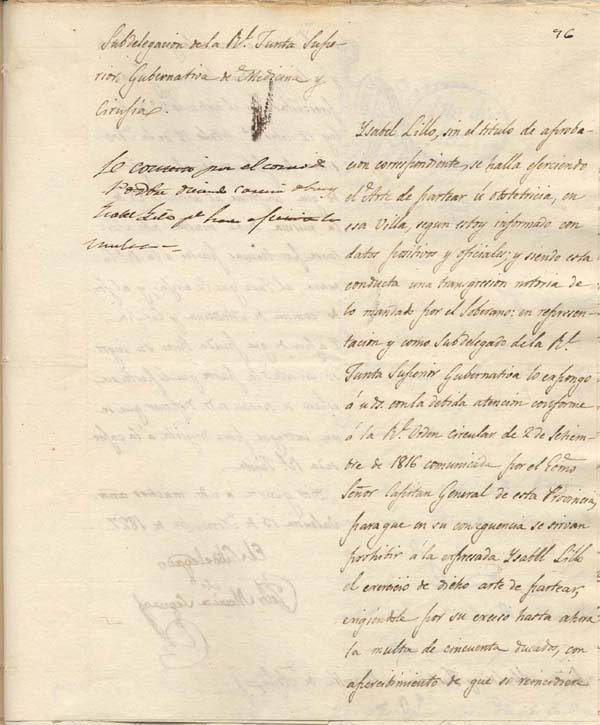 96
Subdelegacion de la Rl. Junta Supe-
rior, Gubernativa de Medicina y
Cirugía.
Ysabel Lillo, sin el titulo de aproba-
cion correspondiente, se halla ejerciendo
el Arte de partear ú obstetricia, en
esa Villa, segun estoy informado con
datos positivos y oficiales; y siendo esta
conducta una transgresion notoria de
lo mandado por el Soberano: en represen-
tacion y como Subdelegado de la Rl.
Junta Superior Gubernativa lo expongo
á uds. con la debida atencion conforme
á la Rl. Orden circular de 2 de Setiem-
bre de 1816 comunicada por el Ecmo
Señor Capitan General de esta Provincia,
para que en su consequencia se sirvan
prohibir á la expresada Ysabél Lillo
el exercicio de dicho arte de partear,
exigiendole por su exceso hasta ahora
la multa de cincuenta ducados, con
apercibimiento de que si reincidiere